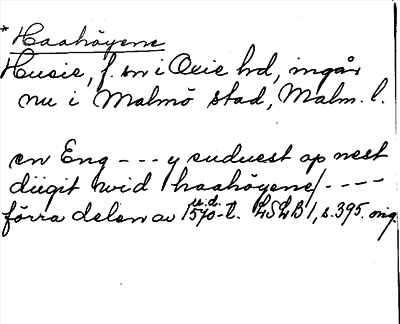 * Haahöyene
Husie, f. sn i Oxie hd, ingår
nu i Malmö stad, Malm. l.
en Eng - - - y suduest op nest
diigit wid haahöyene/ - - - -
förra delen av 1570-t. u.d. LSLB 1, s. 395. orig.